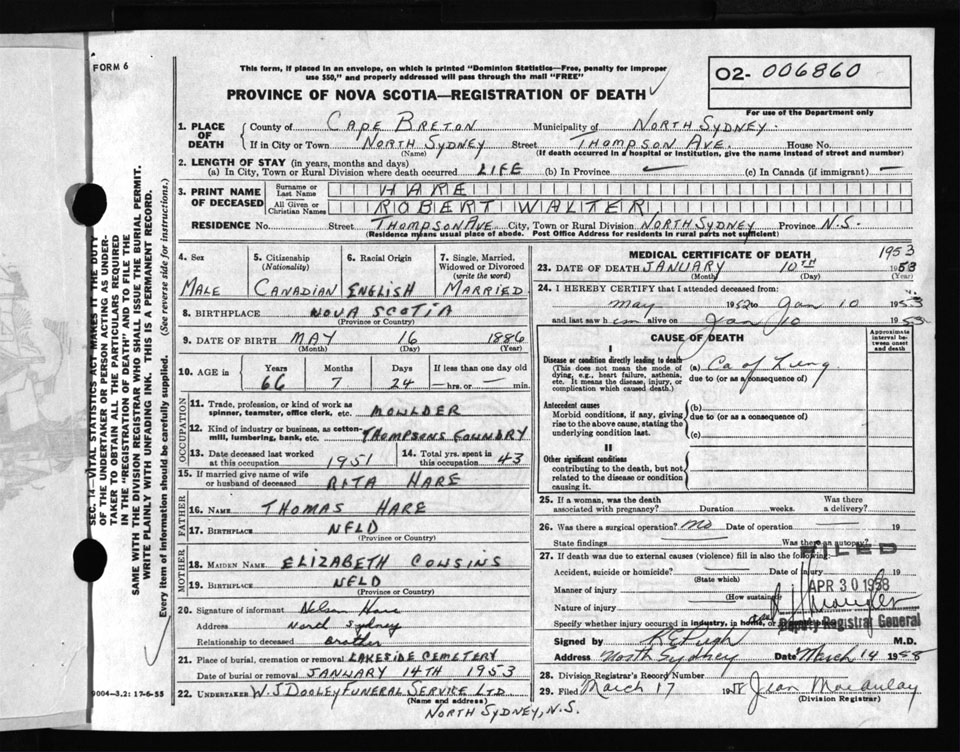 FORM 6
This form, if placed in an envelope, on which is printed "Dominion Statistics—Free, penalty for improper
use $50," and properly addressed will pass through the mail "FREE"
PROVINCE OF NOVA SCOTIA—REGISTRATION OF DEATH
O2- 006860
For use of the Department only
1. PLACE OF DEATH
County of CAPE BRETON Municipality of NORTH SYDNEY
If in City or Town NORTH SYDNEY Street THOMPSON AVE. House No.
(Name) (If death occurred in a hospital or institution, give the name instead of street and number)
2. LENGTH OF STAY (in years, months and days)
(a) In City, Town or Rural Division where death occurred LIFE (b) In Province (c) In Canada (if immigrant)
3. PRINT NAME OF DECEASED
Surname or Last Name HARE
All Given or Christian Names ROBERT WALTER
RESIDENCE No. Street THOMPSON AVE City, Town or Rural Division NORTH SYDNEY Province N.S.
(Residence means usual place of abode. Post Office Address for residents in rural parts not sufficient)
4. Sex
MALE
5. Citizenship (Nationality)
CANADIAN
6. Racial Origin
ENGLISH
7. Single, Married, Widowed or Divorced (write the word)
MARRIED
8. BIRTHPLACE NOVA SCOTIA
(Province or Country)
9. DATE OF BIRTH MAY 16 1886
(Month) (Day) (Year)
10. AGE in Years Months Days If less than one day old
66 7 24 — hrs. or — min.
OCCUPATION
11. Trade, profession, or kind of work as
spinner, teamster, office clerk, etc. MOULDER
12. Kind of industry or business, as cotton-
mill, lumbering, bank, etc. THOMPSONS FOUNDRY
13. Date deceased last worked
at this occupation 1951
14. Total yrs. spent in
this occupation 43
15. If married give name of wife
or husband of deceased RITA HARE
FATHER
16. NAME THOMAS HARE
17. BIRTHPLACE NFLD
(Province or Country)
MOTHER
18. MAIDEN NAME ELIZABETH COUSINS
19. BIRTHPLACE NFLD
(Province or Country)
20. Signature of informant Nelson Hare
Address North Sydney
Relationship to deceased Brother
21. Place of burial, cremation or removal LAKESIDE CEMETERY
Date of burial or removal JANUARY 14TH 1953
22. UNDERTAKER W.J DOOLEY FUNERAL SERVICE LTD
(Name and address)
NORTH SYDNEY, N.S.
MEDICAL CERTIFICATE OF DEATH
1953
23. DATE OF DEATH JANUARY 10TH 1953
(Month) (Day)
24. I HEREBY CERTIFY that I attended deceased from:
May 1952 to Jan 10 1953
and last saw him alive on Jan 10 1953
CAUSE OF DEATH
Approximate interval between onset and death
I
Disease or condition directly leading to death
(This does not mean the mode of
dying, e.g., heart failure, asthenia,
etc. It means the disease, injury, or
complication which caused death.)
(a) Ca of Lung
due to (or as a consequence of)
Antecedent causes
Morbid conditions, if any, giving
rise to the above cause, stating the
underlying condition last.
(b)
due to (or as a consequence of)
(c)
II
Other significant conditions
contributing to the death, but not
related to the disease or condition
causing it.
25. If a woman, was the death Was there
associated with pregnancy? Duration weeks. a delivery?
26. Was there a surgical operation? No Date of operation 19
State findings Was there an autopsy?
27. If death was due to external causes (violence) fill in also the following:
Accident, suicide or homicide? Date of injury 19
(State which)
Manner of injury
(How sustained)
Nature of injury
Specify whether injury occurred in industry, in home, or
FILED
APR 30 1958
Deputy Registrar General
Signed by M.D.
Address North Sydney Date March 14 1958
28. Division Registrar's Record Number
29. Filed March 17 1958 Jean Macaulay
(Division Registrar)
SEC. 14—VITAL STATISTICS ACT MAKES IT THE DUTY
OF THE UNDERTAKER OR PERSON ACTING AS UNDER-
TAKER TO OBTAIN ALL THE PARTICULARS REQUIRED
IN THE "REGISTRATION OF DEATH" AND TO FILE THE
SAME WITH THE DIVISION REGISTRAR WHO SHALL ISSUE THE BURIAL PERMIT.
WRITE PLAINLY WITH UNFADING INK. THIS IS A PERMANENT RECORD.
Every item of information should be carefully supplied. (See reverse side for instructions.)
9004-3.2: 17-6-55